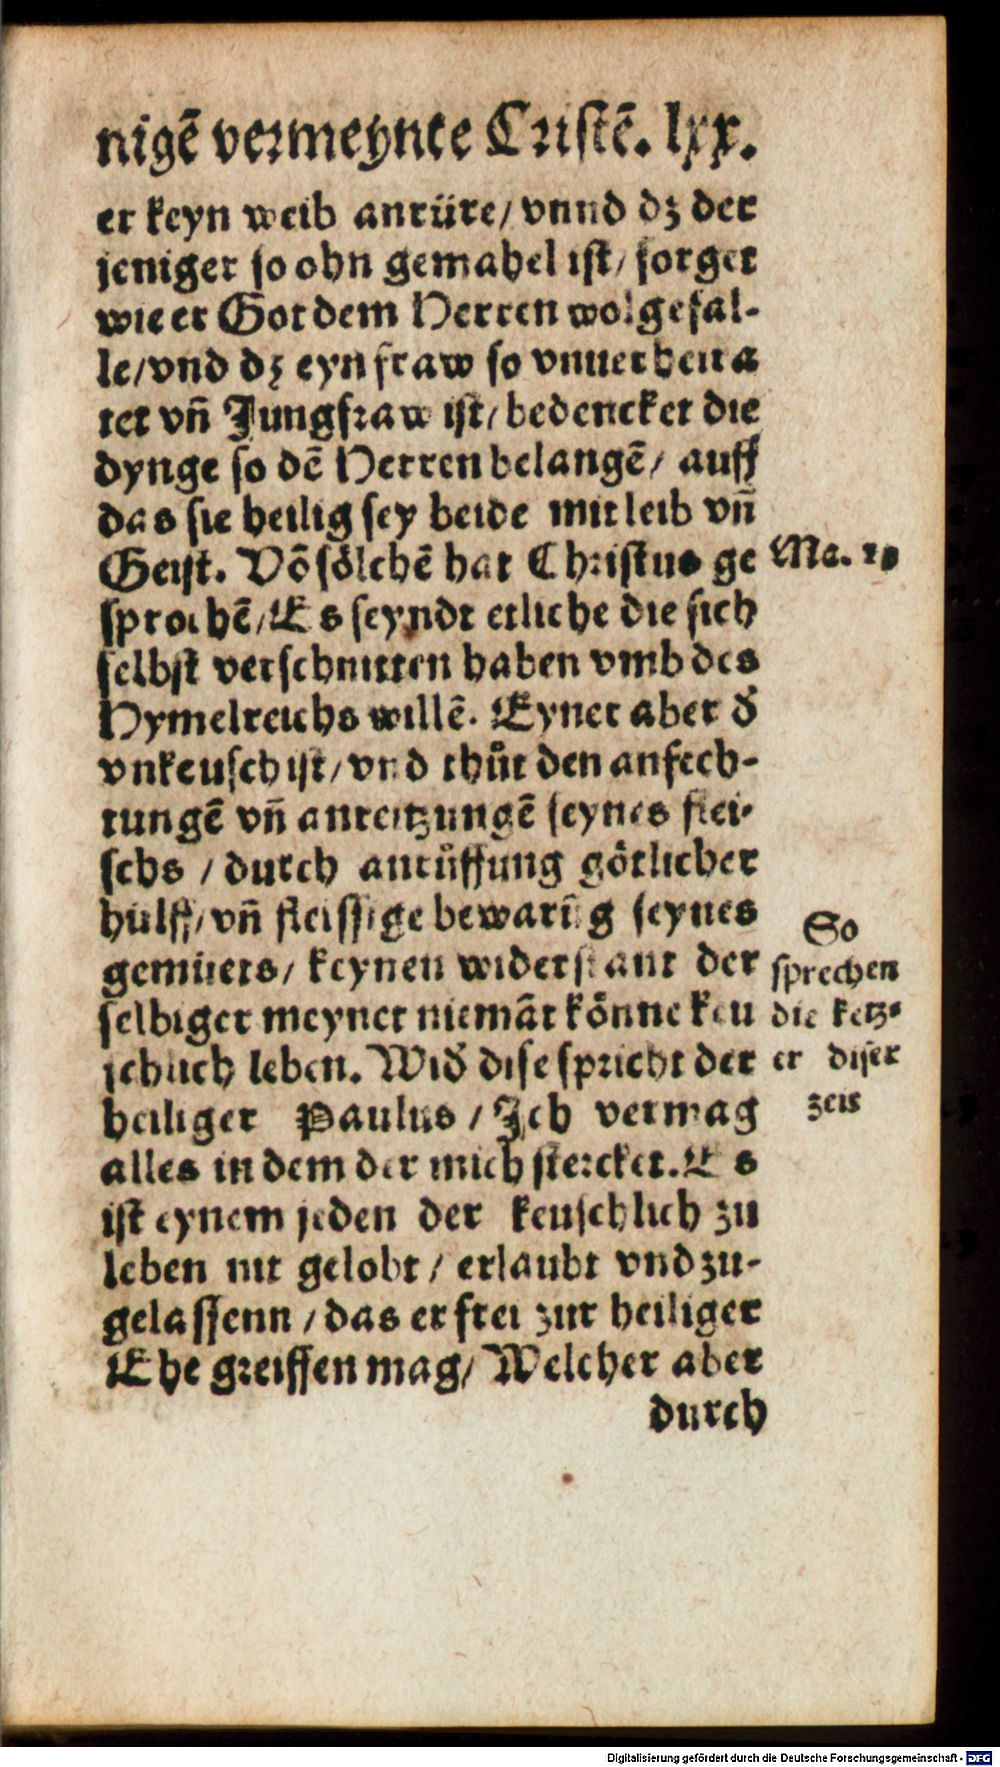 nigẽ vermeynte Cristẽ. lxx.
er keyn weib anrüre/ vnnd dz der
jeniger so ohn gemahel ist/ sorget
wie er Got dem Herren wolgefal-
le/ vnd dz eyn fraw so vnuerheira
tet vñ Jungfraw ist/ bedencket die
dynge so dẽ Herren belangẽ/ auff
das sie heilig sey beide mit leib vñ
Geist. Võ sölchẽ hat Christus ge
sprochẽ/ Es seyndt etliche die sich
selbst verschnitten haben vmb des
Hymelreichs willẽ. Eyner aber d̃
vnkeusch ist/ vnd thůt den anfech-
tungẽ vñ anreitzungẽ seynes flei-
schs / durch anrůffung götlicher
hülff/ vñ fleissige bewarũg seynes
gemüets/ keynen widerstant der
selbiger meynet niemãt könne keu
schlich leben. Wid̃ dise spricht der
heiliger Paulus / Ich vermag
alles in dem der mich stercket. Es
ist eynem jeden der keuschlich zu
leben nit gelobt / erlaubt vnd zu-
gelassenn / das er frei zur heiliger
Ehe greiffen mag/ Welcher aber
durch
Ma. 19
So
sprechen
die ketz-
er diser
zeit
Digitalisierung gefördert durch die Deutsche Forschungsgemeinschaft - DFG